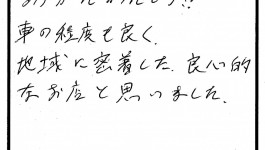 車の程度も良く、
地域に密着した、良心的
なお店と思いました。